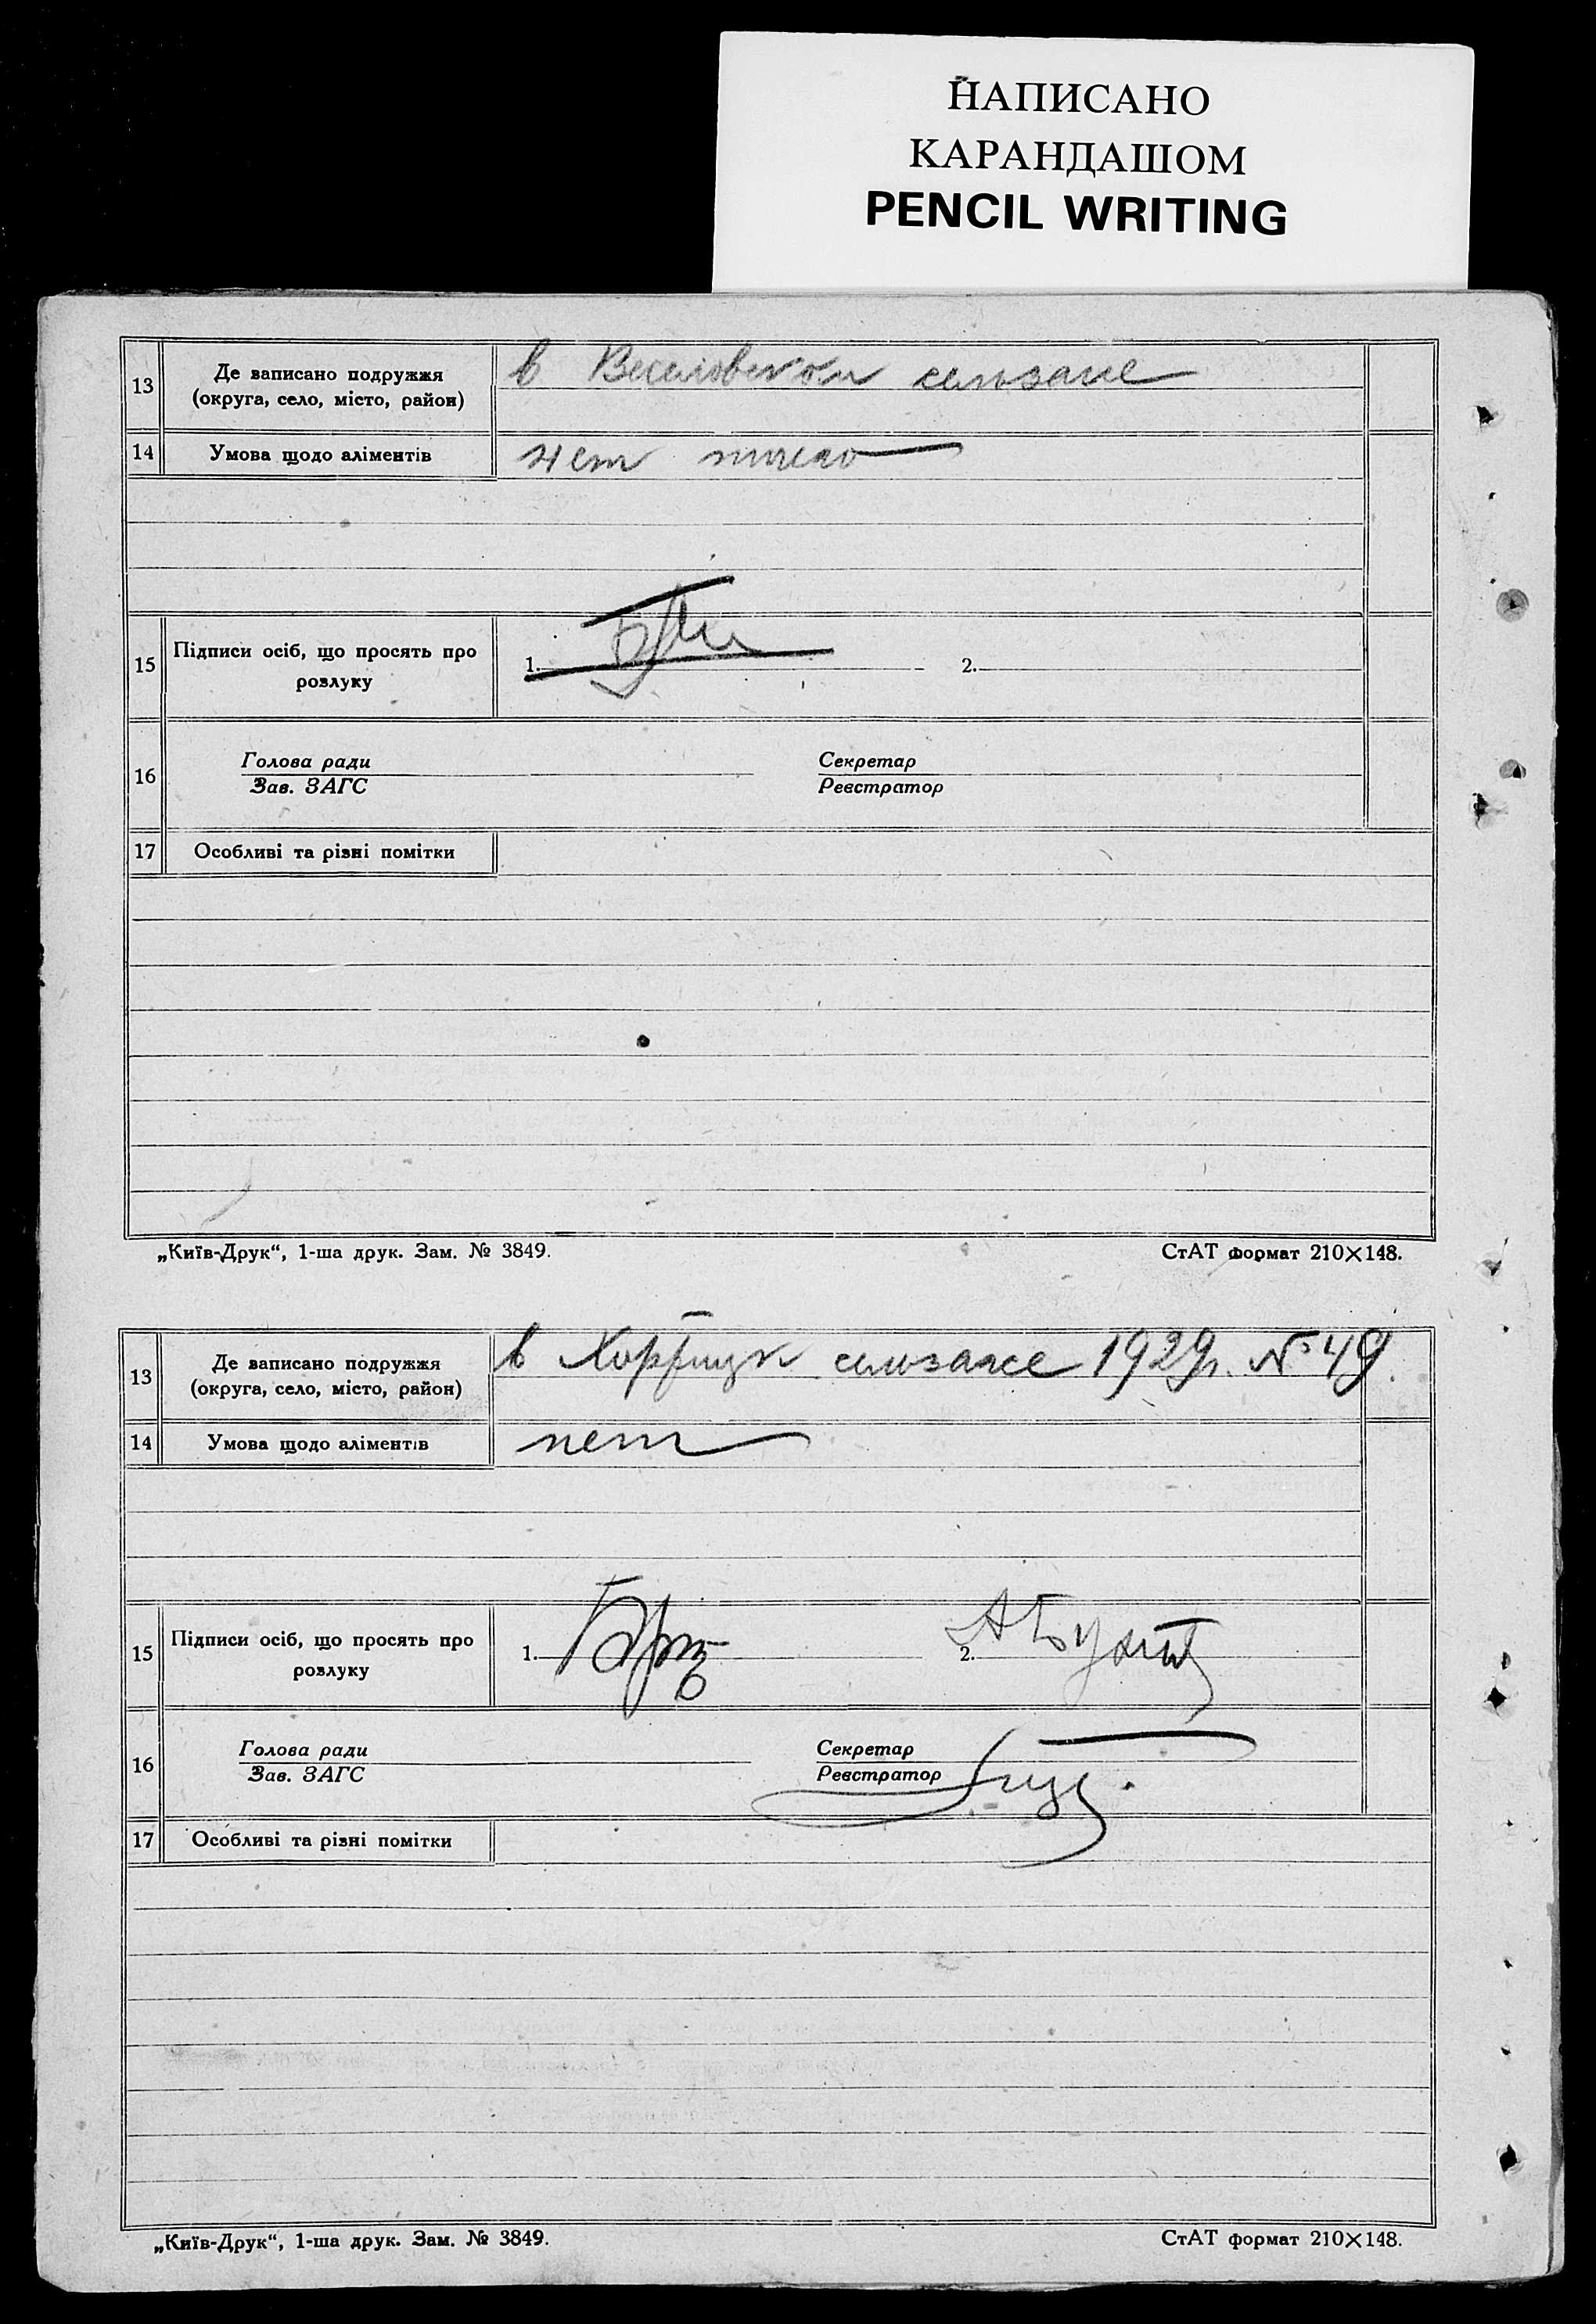 НАПИСАНО
КАРАНДАШОМ
PENCIL WRITING
13 Де записано подружжя
(округа, село, місто, район)
в Веселовском сельзагсе
14 Умова щодо аліментів
нет
15 Підписи осіб, що просять про
розлуку
1. 2.
16 Голова ради
Зав. ЗАГС
Секретар
Реєстратор
17 Особливі та різні помітки
„Київ-Друк“, 1-ша друк. Зам. № 3849.
СтАТ формат 210×148.
13 Де записано подружжя
(округа, село, місто, район)
в сельзагсе 1929г. № 49
14 Умова щодо аліментів
нет
15 Підписи осіб, що просять про
розлуку
1. 2.
16 Голова ради
Зав. ЗАГС
Секретар
Реєстратор
17 Особливі та різні помітки
„Київ-Друк“, 1-ша друк. Зам. № 3849.
СтАТ формат 210×148.